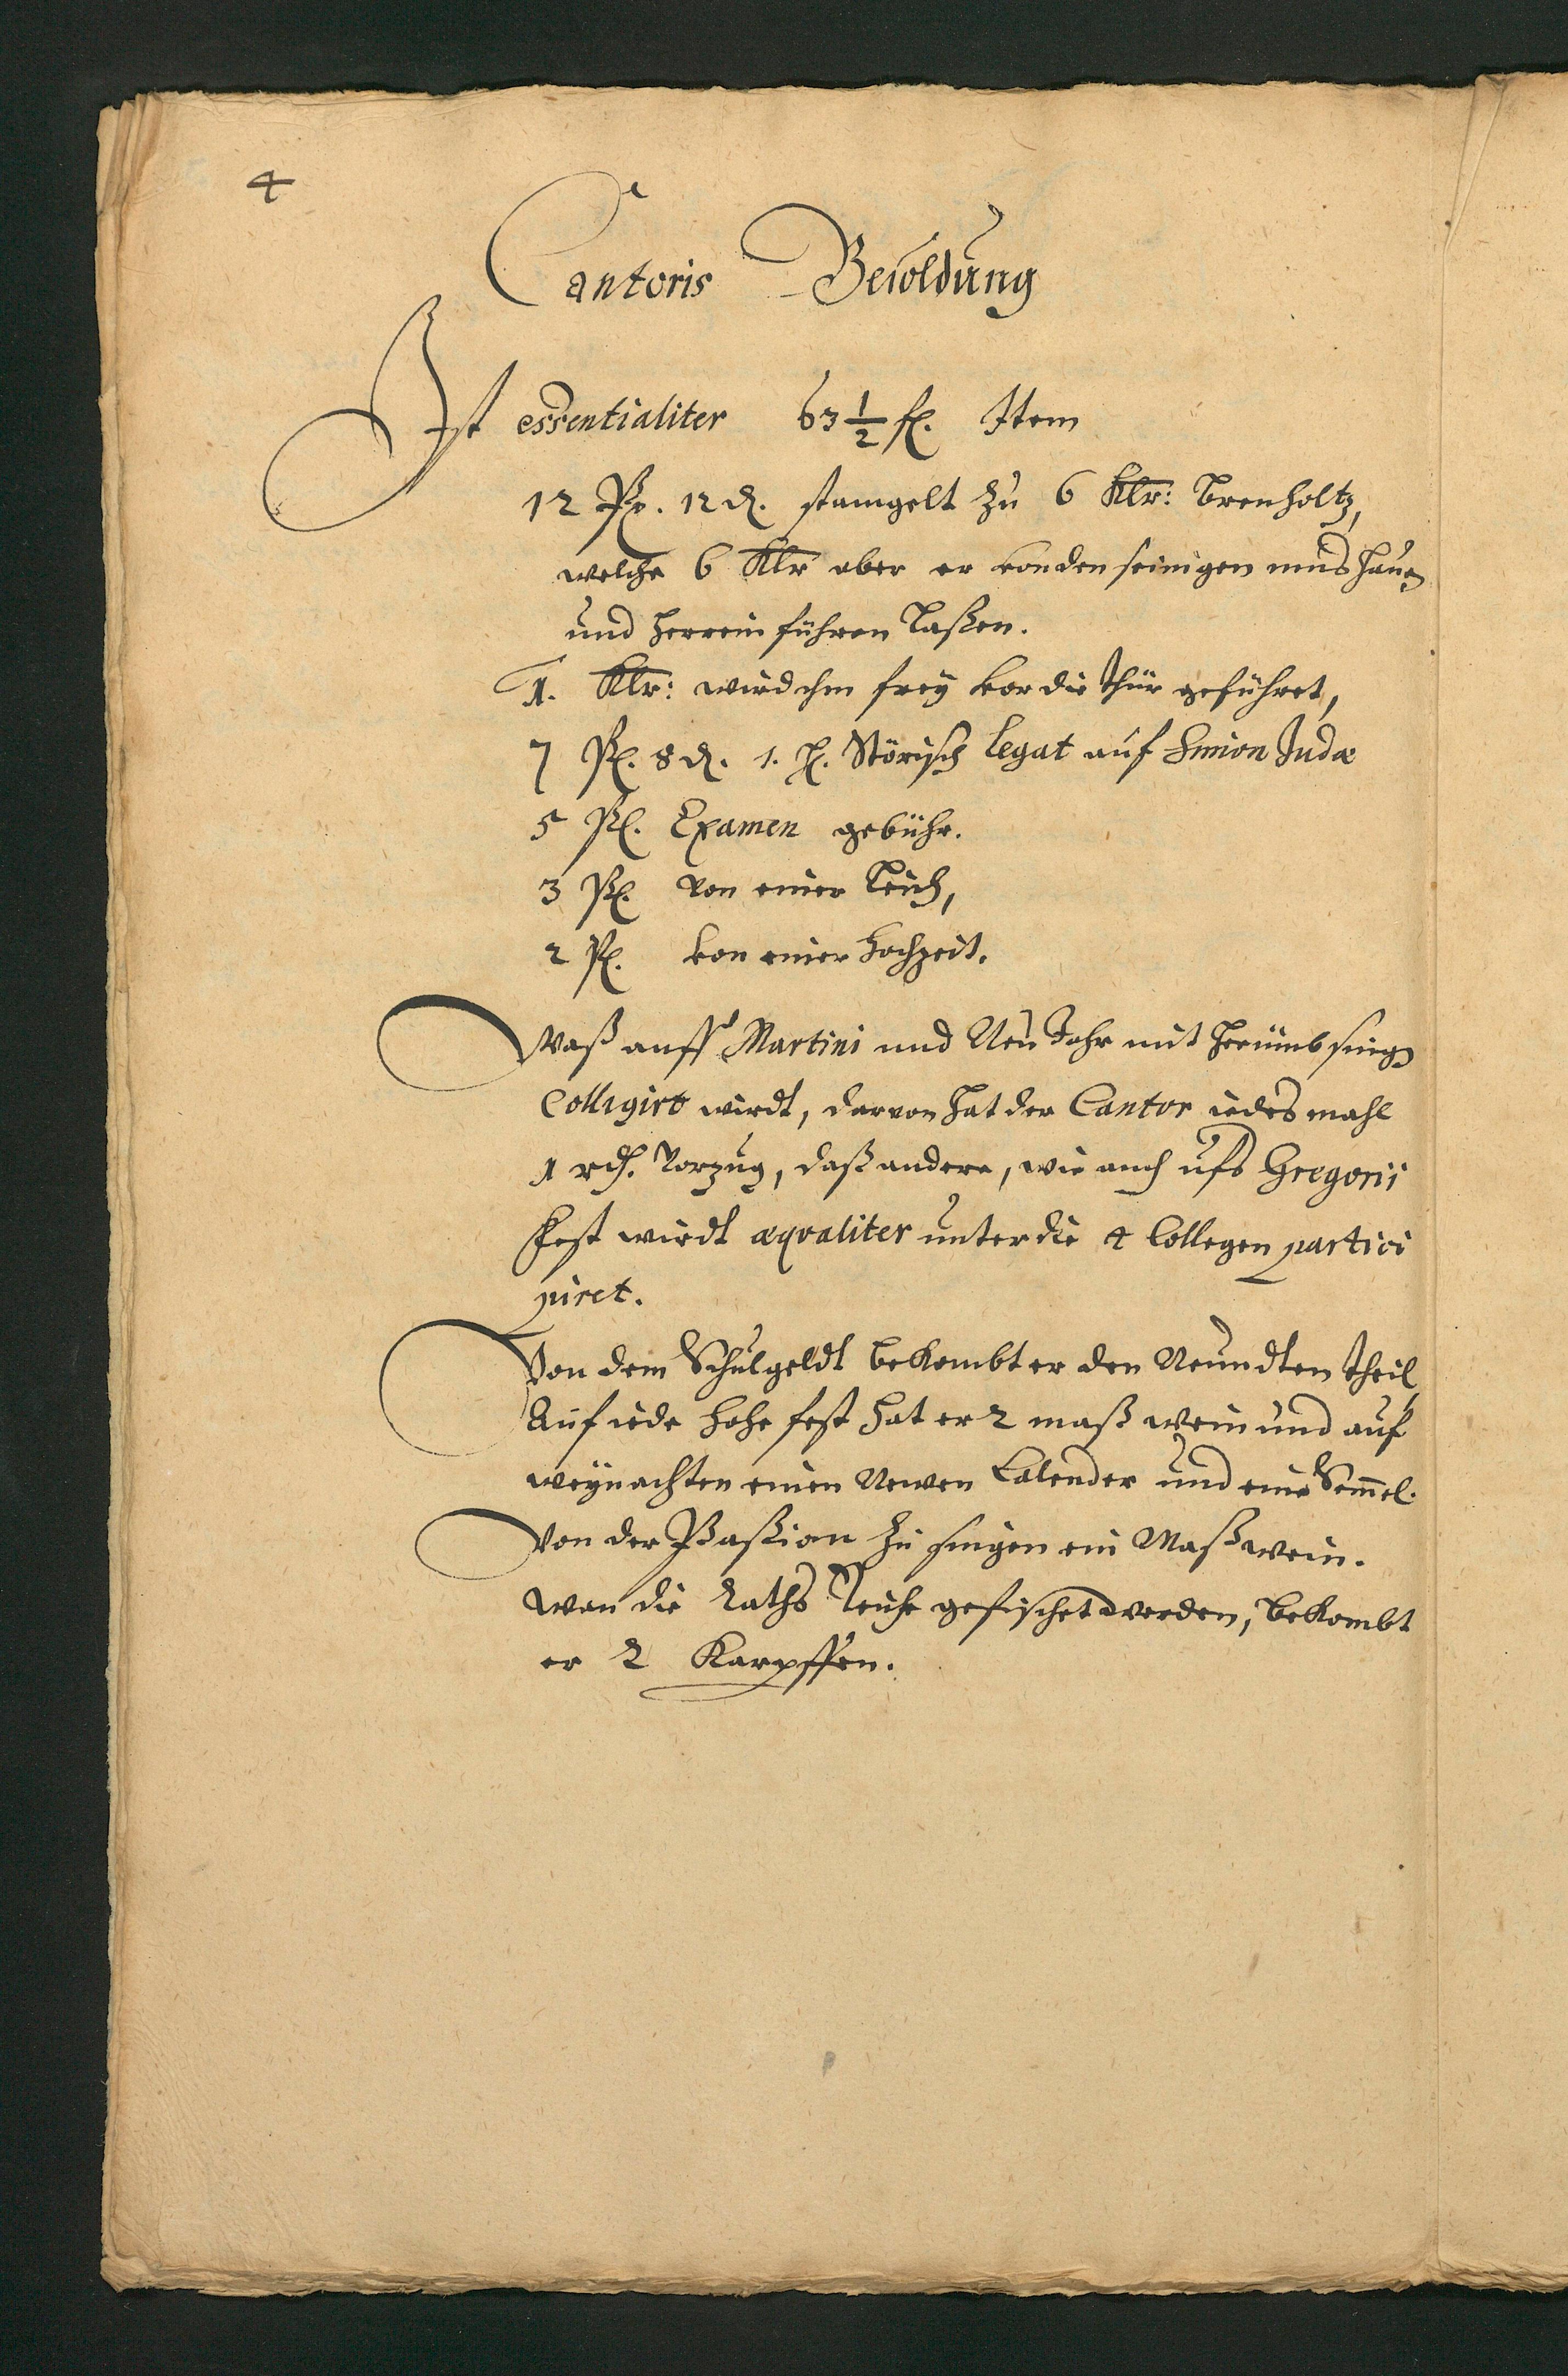 4
Cantoris Besoldung
Ist essentialiter 63 1/2 fl. Item
12 gl. 12 d. stamgelt zu 6 Klr: brenholtz,
welche 6 Klr aber er von den seinigen mus hauen
und herrein führen laßen.
1. Klr: wird ihm frey vor die thür geführet,
7 gl. 8 d. 1. h. Störisch Legat auf Simon Judæ
5 gl. Examen gebühr.
3 gl. von einer Leich,
2 gl. von einer Hochzeit.
Waß auff Martini und Neu Jahr mit herümb singen
Colligirt wirdt, darvon hat der Cantor iedes mahl
1 rth. Vorzug, daß andere, wie auch ufs Gregorii
Fest wirdt æqvaliter unter die 4 Collegen partici
piret.
Von dem Schulgeldt bekombt er den Neundten theil,
Auf iede hohe fest hat er 2 maß wein und auf
weynachten einen Newen Calender und eine Semel.
Von der Paßion zu singen ein Maß wein.
Wan die Raths Teiche gefischet werden, bekombt
er 2 Karpffen.